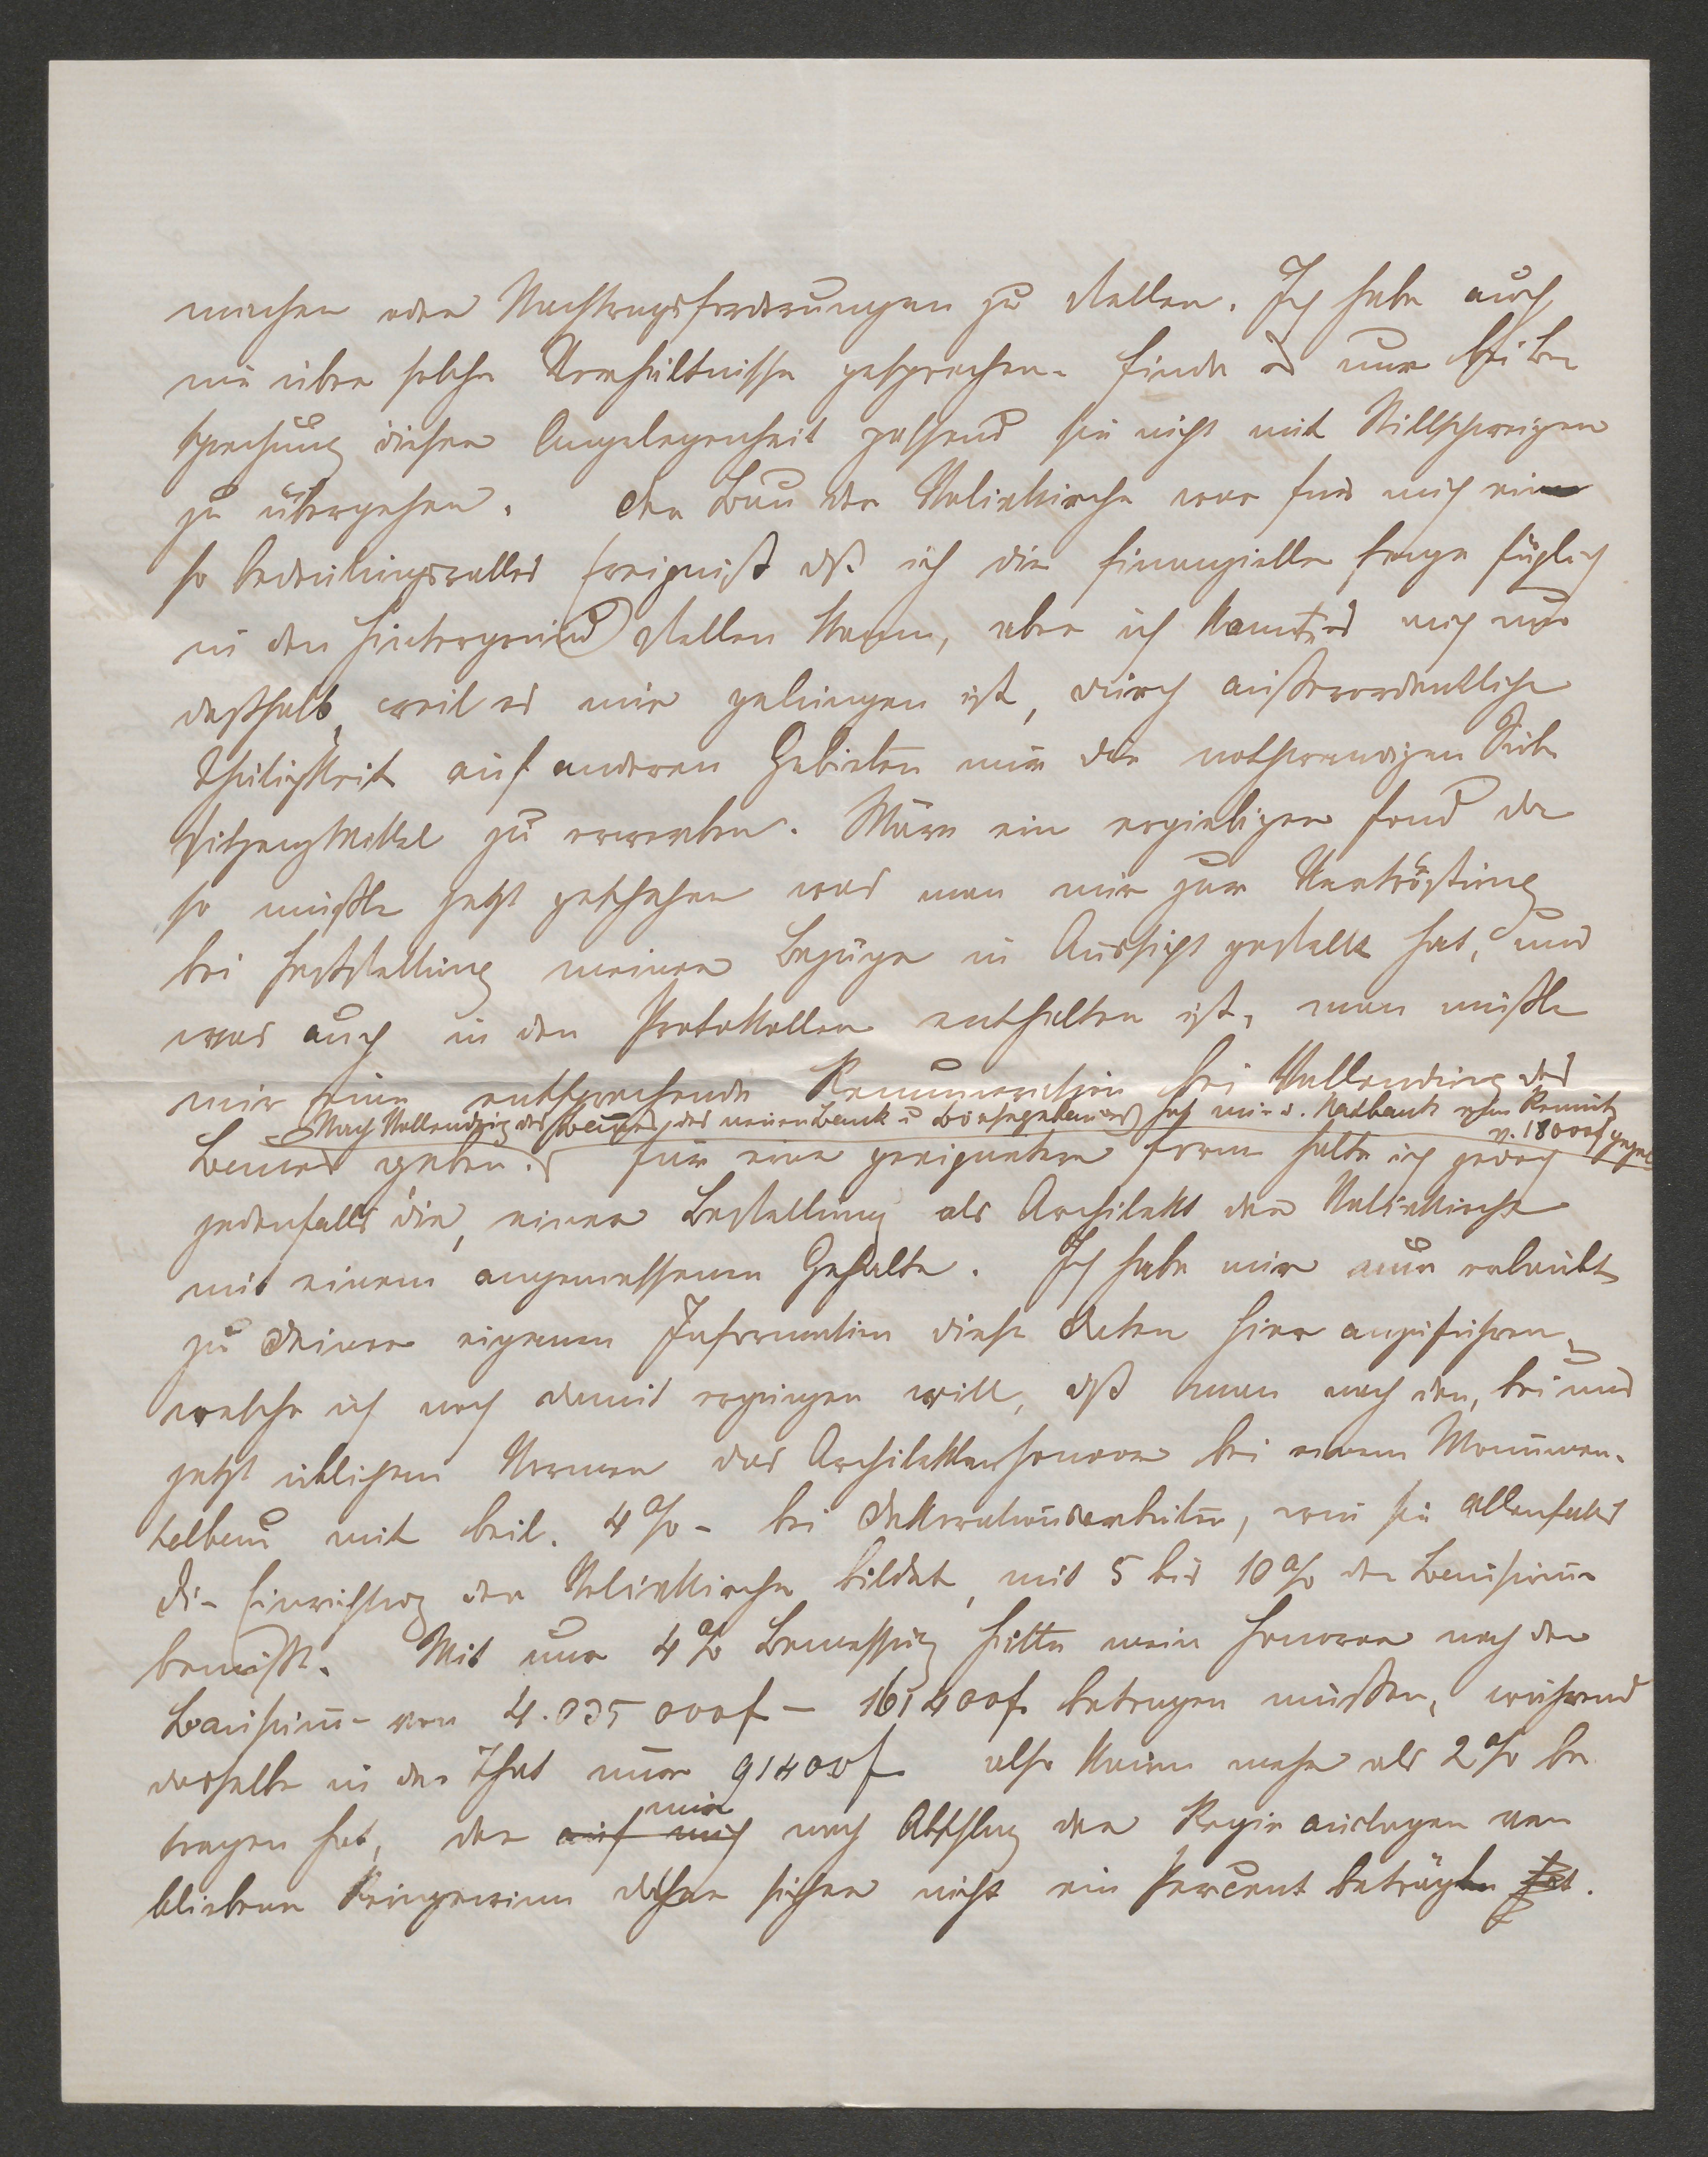 machen oder Nachtragsforderungen zu stellen. Ich habe auch
nie über solche Verhältnisse gesprochen. finde es nur bei Be
sprechung dieser Angelegenheit passend sie nicht mit Stillschweigen
zu übergehen. Der Bau der Votivkirche war für mich ein
so bedeutungsvolles Ereigniß dß ich die finanzielle Frage füglich
in den Hintergrund stellen kann, aber ich konnte es auch nur
deßhalb, weil es mir gelungen ist, durch außerordentliche
Thätigkeit auf anderen Gebieten mir die nothwendigen Sub
sistenzmittel zu erwerben. Wäre ein ergiebiger Fond da
so müßte jetzt geschehen was man mir zur Vertröstung
bei Feststellung meiner Bezüge in Aussicht gestellt hat, und
was auch in den Protokollen enthalten ist, man müßte
mir eine entsprechende Remuneration bei Vollendung des
Nach Vollendung des Baues des neuen Bank u Börsegebäudes hat mir d. Natbank eine Remun
v. 18000f gegeb
Baues geben. Für eine geeignetere Form halte ich jedoch
jedenfalls die, einer Bestellung als Architekt der Votivkirche
mit einem angemessenen Gehalte. Ich habe mir nur erlaubt
zu Deiner eigenen Information diese Daten hier anzuführen,
welche ich noch damit ergänzen will, dß man nach den, bei uns
jetzt üblichen Normen das Architektenhonorar bei einem Monumen-
talbau mit beil. 4% - bei Dekorationsarbeiten, wie sie allenfalls
die Einrichtung der Votivkirche bildet, mit 5 bis 10% der Bausum̅e
bemißt. Mit nur 4% Bemessung hätte mein Honorar nach der
Bausum̅e von 4.035 000f - 161400f. betragen müssen, während
dasselbe in der That nur 91400f also kaum mehr als 2% be
tragen hat, der auf mich mir nach Abschlag der Regie auslagen ver
bliebene Reingewinn daher sicher nicht ein Percent betrügen hat.